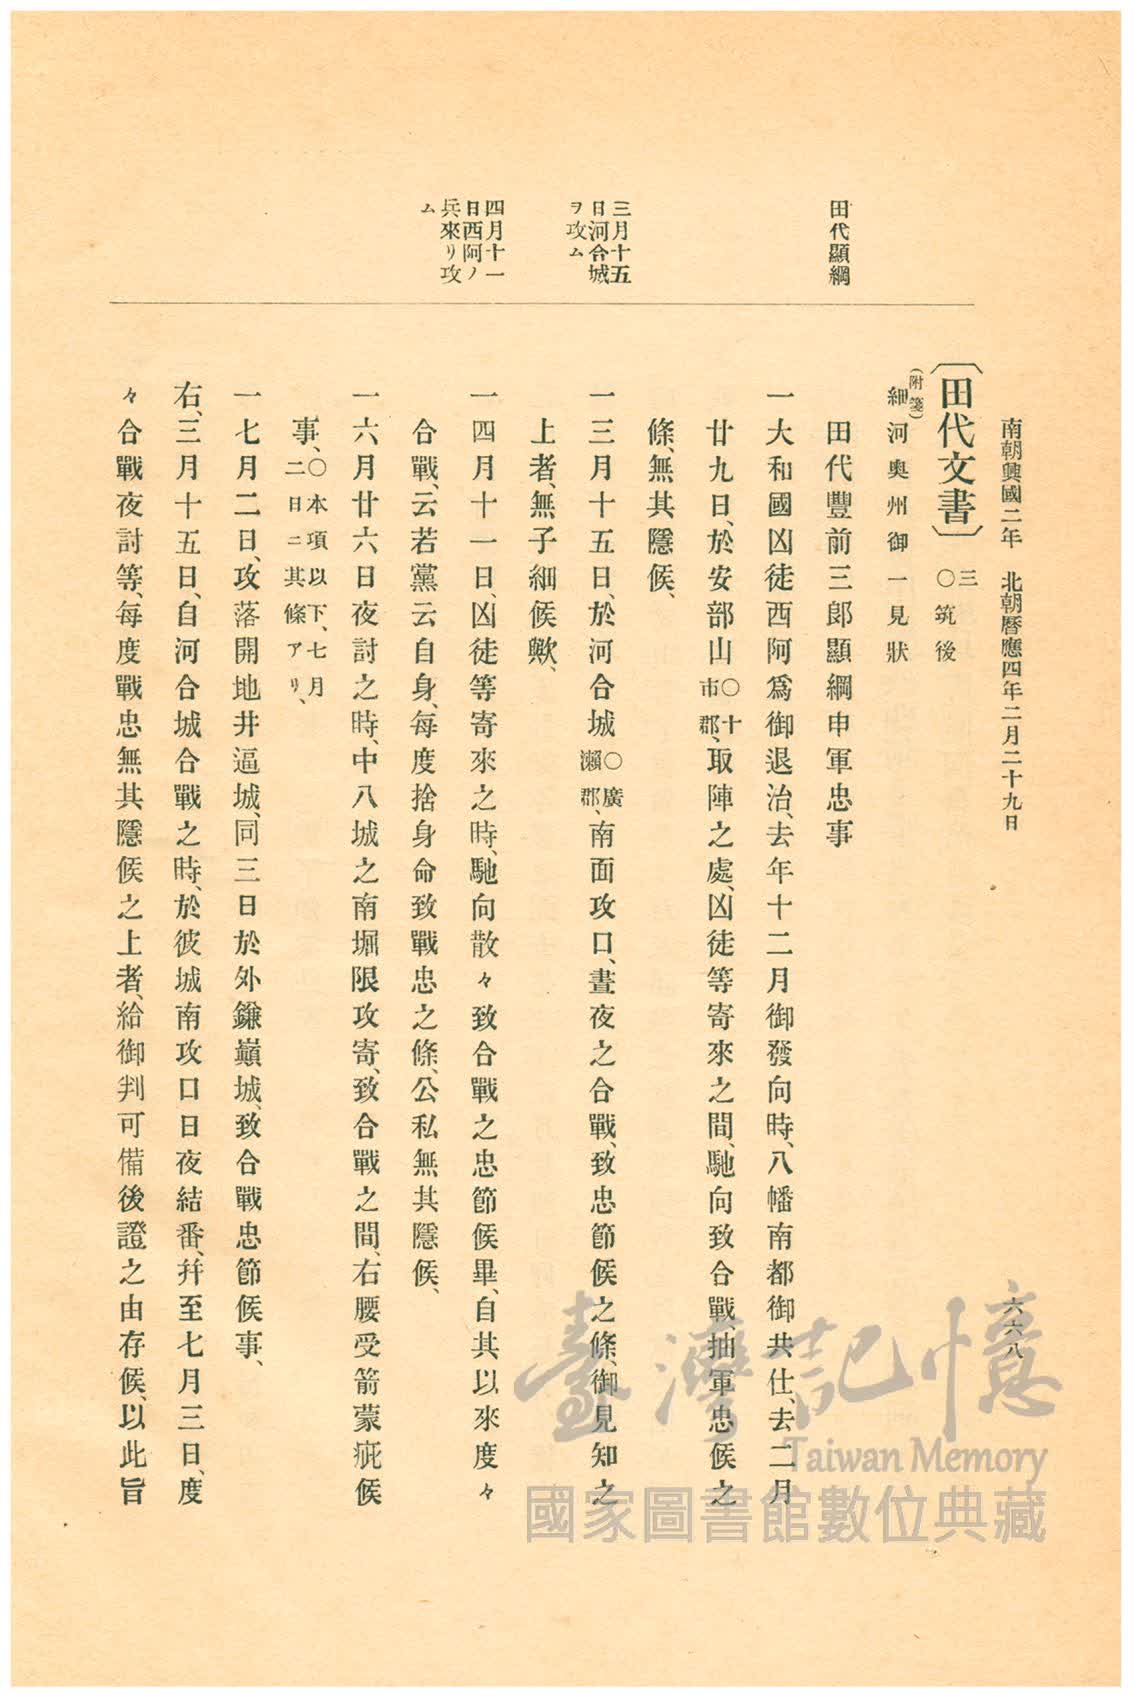 南朝興國二年 北朝曆應四年二月二十九日
六六八
〔田代文書〕三
○筑後
(附箋)
細河奧州御一見狀
田代顯綱
田代豐前三郎顯綱申軍忠事
一大和國凶徒西阿爲御退治、去年十二月御發向時、八幡南都御共仕、去二月
廿九日、於安部山○十市郡、取陣之處、凶徒等寄來之間、馳向致合戰、抽軍忠候之
條、無其隱候、
三月十五
日河合城
ヲ攻ム
一三月十五日、於河合城○廣瀨郡、南面攻口、晝夜之合戰、致忠節候之條、御見知之
上者、無子細候歟、
四月十一
日西阿ノ
兵來リ攻
ム
一四月十一日、凶徒等寄來之時、馳向散々致合戰之忠節候畢、自其以來度々
合戰、云若黨云自身、每度捨身命致戰忠之條、公私無其隱候、
一六月廿六日夜討之時、中八城之南堀限攻寄、致合戰之間、右腰受箭蒙疵候
事、○本項以下、七月
二日ニ其條アリ、
一七月二日、攻落開地井逼城、同三日於外鎌巓城、致合戰忠節候事、
右、三月十五日、自河合城合戰之時、於彼城南攻口日夜結番、幷至七月三日、度
々合戰夜討等、每度戰忠無其隱候之上者、給御判可備後證之由存候、以此旨
臺灣記憶
Taiwan Memory
國家圖書館數位典藏